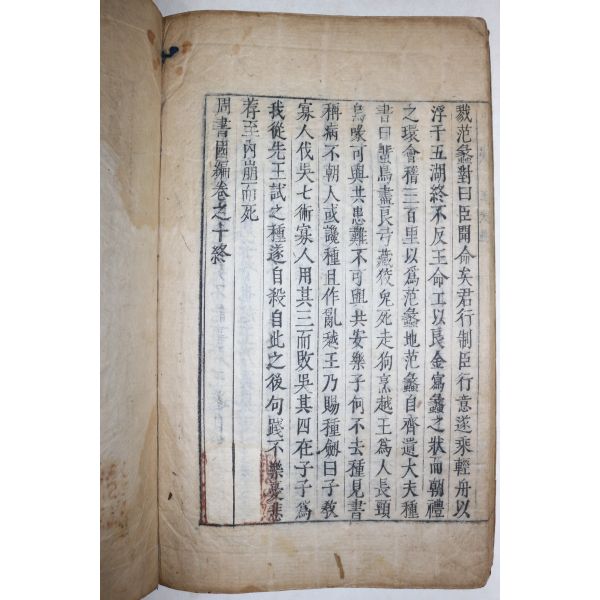 戮范蠡對曰臣聞命矣君行制臣行意遂乘輕舟以
浮于五湖終不反王命工以良金寫蠡之狀而朝禮
之環會稽三百里以爲范蠡地范蠡自齊遺大夫種
書曰蜚鳥盡良弓藏狡兔死走狗烹越王爲人長頸
烏喙可與共患難不可與共安樂子何不去種見書
稱病不朝人或讒種且作亂越王乃賜種劒曰子敎
寡人伐吳七術寡人用其三而敗吳其四在子子爲
我從先王試之種遂自殺自此之後句踐不樂憂悲
荐至內崩而死
周書國編卷之十終